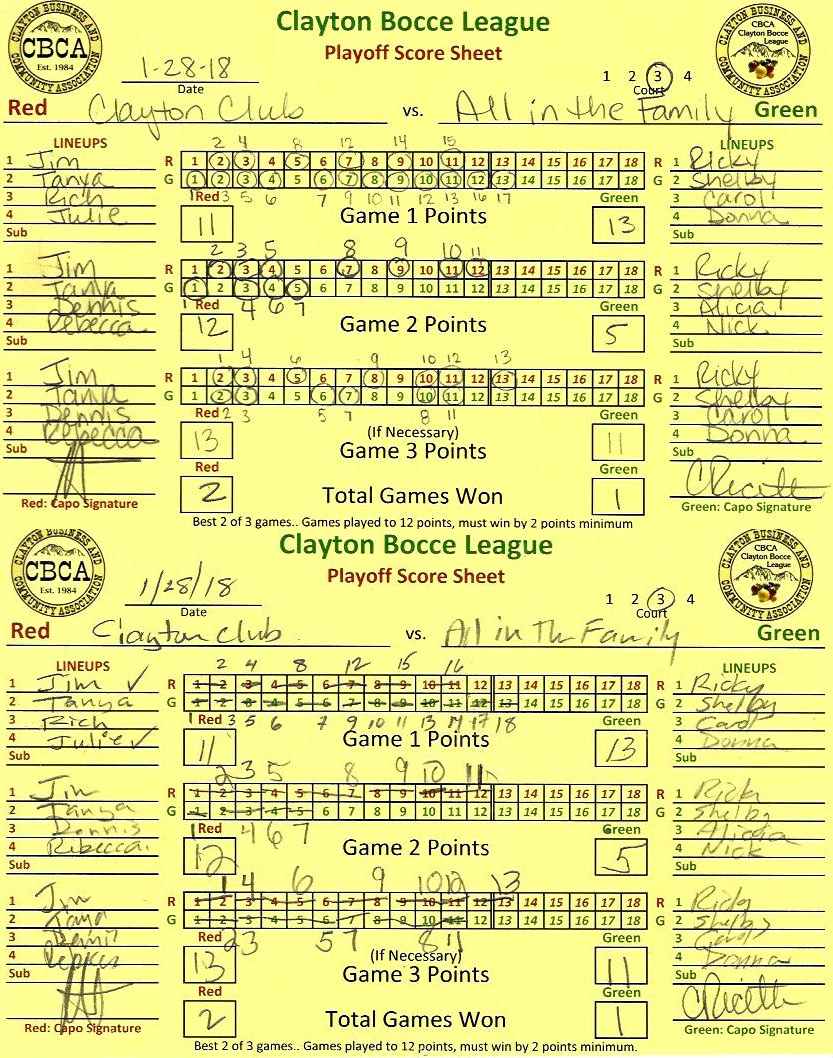 CLAYTON BUSINESS AND COMMUNITY ASSOCIATION
CBCA
Est. 1984
Clayton Bocce League
Playoff Score Sheet
CBCA
Clayton Bocce League
1-28-18
Date
1 2 3 4
Court
Red Clayton Club vs. All in the Family Green
LINEUPS
LINEUPS
2 4 8 12 14 15
1 Jim
R 1 2 3 4 5 6 7 8 9 10 11 12 13 14 15 16 17 18 R
1 Ricky
2 Tanya
G 1 2 3 4 5 6 7 8 9 10 11 12 13 14 15 16 17 18 G
2 Shelby
3 Rich
1 Red 3 5 6 7 9 10 11 12 13 16 17 Green
3 Carol
4 Julie
11 Game 1 Points 13
4 Donna
Sub
Sub
2 3 5 8 9 10 11
1 Jim
R 1 2 3 4 5 6 7 8 9 10 11 12 13 14 15 16 17 18 R
1 Ricky
2 Tanya
G 1 2 3 4 5 6 7 8 9 10 11 12 13 14 15 16 17 18 G
2 Shelby
3 Dennis
1 Red 4 6 7 Green
3 Alicia
4 Rebecca
12 Game 2 Points 5
4 Nick
Sub
Sub
1 4 6 9 10 12 13
1 Jim
R 1 2 3 4 5 6 7 8 9 10 11 12 13 14 15 16 17 18 R
1 Ricky
2 Tanya
G 1 2 3 4 5 6 7 8 9 10 11 12 13 14 15 16 17 18 G
2 Shelby
3 Dennis
Red 2 3 5 7 8 11 Green
3 Carol
4 Rebecca
13 (If Necessary) 11
Game 3 Points
4 Donna
Sub
Sub
Red Green
2 Total Games Won 1
Red: Capo Signature
Green: Capo Signature
Best 2 of 3 games.. Games played to 12 points, must win by 2 points minimum
CLAYTON BUSINESS AND COMMUNITY ASSOCIATION
CBCA
Est. 1984
Clayton Bocce League
Playoff Score Sheet
CBCA
Clayton Bocce League
1/28/18
Date
1 2 3 4
Court
Red Clayton Club vs. All in The Family Green
LINEUPS
LINEUPS
2 4 8 12 15 16
1 Jim ✓
R 1 2 3 4 5 6 7 8 9 10 11 12 13 14 15 16 17 18 R
1 Ricky
2 Tanya
G 1 2 3 4 5 6 7 8 9 10 11 12 13 14 15 16 17 18 G
2 Shelby
3 Rich
1 Red 3 5 6 7 9 10 11 13 14 17 18 Green
3 Carol
4 Julie ✓
11 Game 1 Points 13
4 Donna
Sub
Sub
2 3 5 8 9 10 11
1 Jim
R 1 2 3 4 5 6 7 8 9 10 11 12 13 14 15 16 17 18 R
1 Rick
2 Tanya
G 1 2 3 4 5 6 7 8 9 10 11 12 13 14 15 16 17 18 G
2 Shelby
3 Dennis
1 Red 4 6 7 Green
3 Alicia
4 Rebecca
12 Game 2 Points 5
4 Nick
Sub
Sub
1 4 6 9 10 12 13
1 Jim
R 1 2 3 4 5 6 7 8 9 10 11 12 13 14 15 16 17 18 R
1
2
G 1 2 3 4 5 6 7 8 9 10 11 12 13 14 15 16 17 18 G
2 Shelby
3
Red 2 3 5 7 8 11 Green
3 Carol
4
13 (If Necessary) 11
Game 3 Points
4 Donna
Sub
Sub
Red Green
2 Total Games Won 1
Red: Capo Signature
Green: Capo Signature
Best 2 of 3 games.. Games played to 12 points, must win by 2 points minimum.